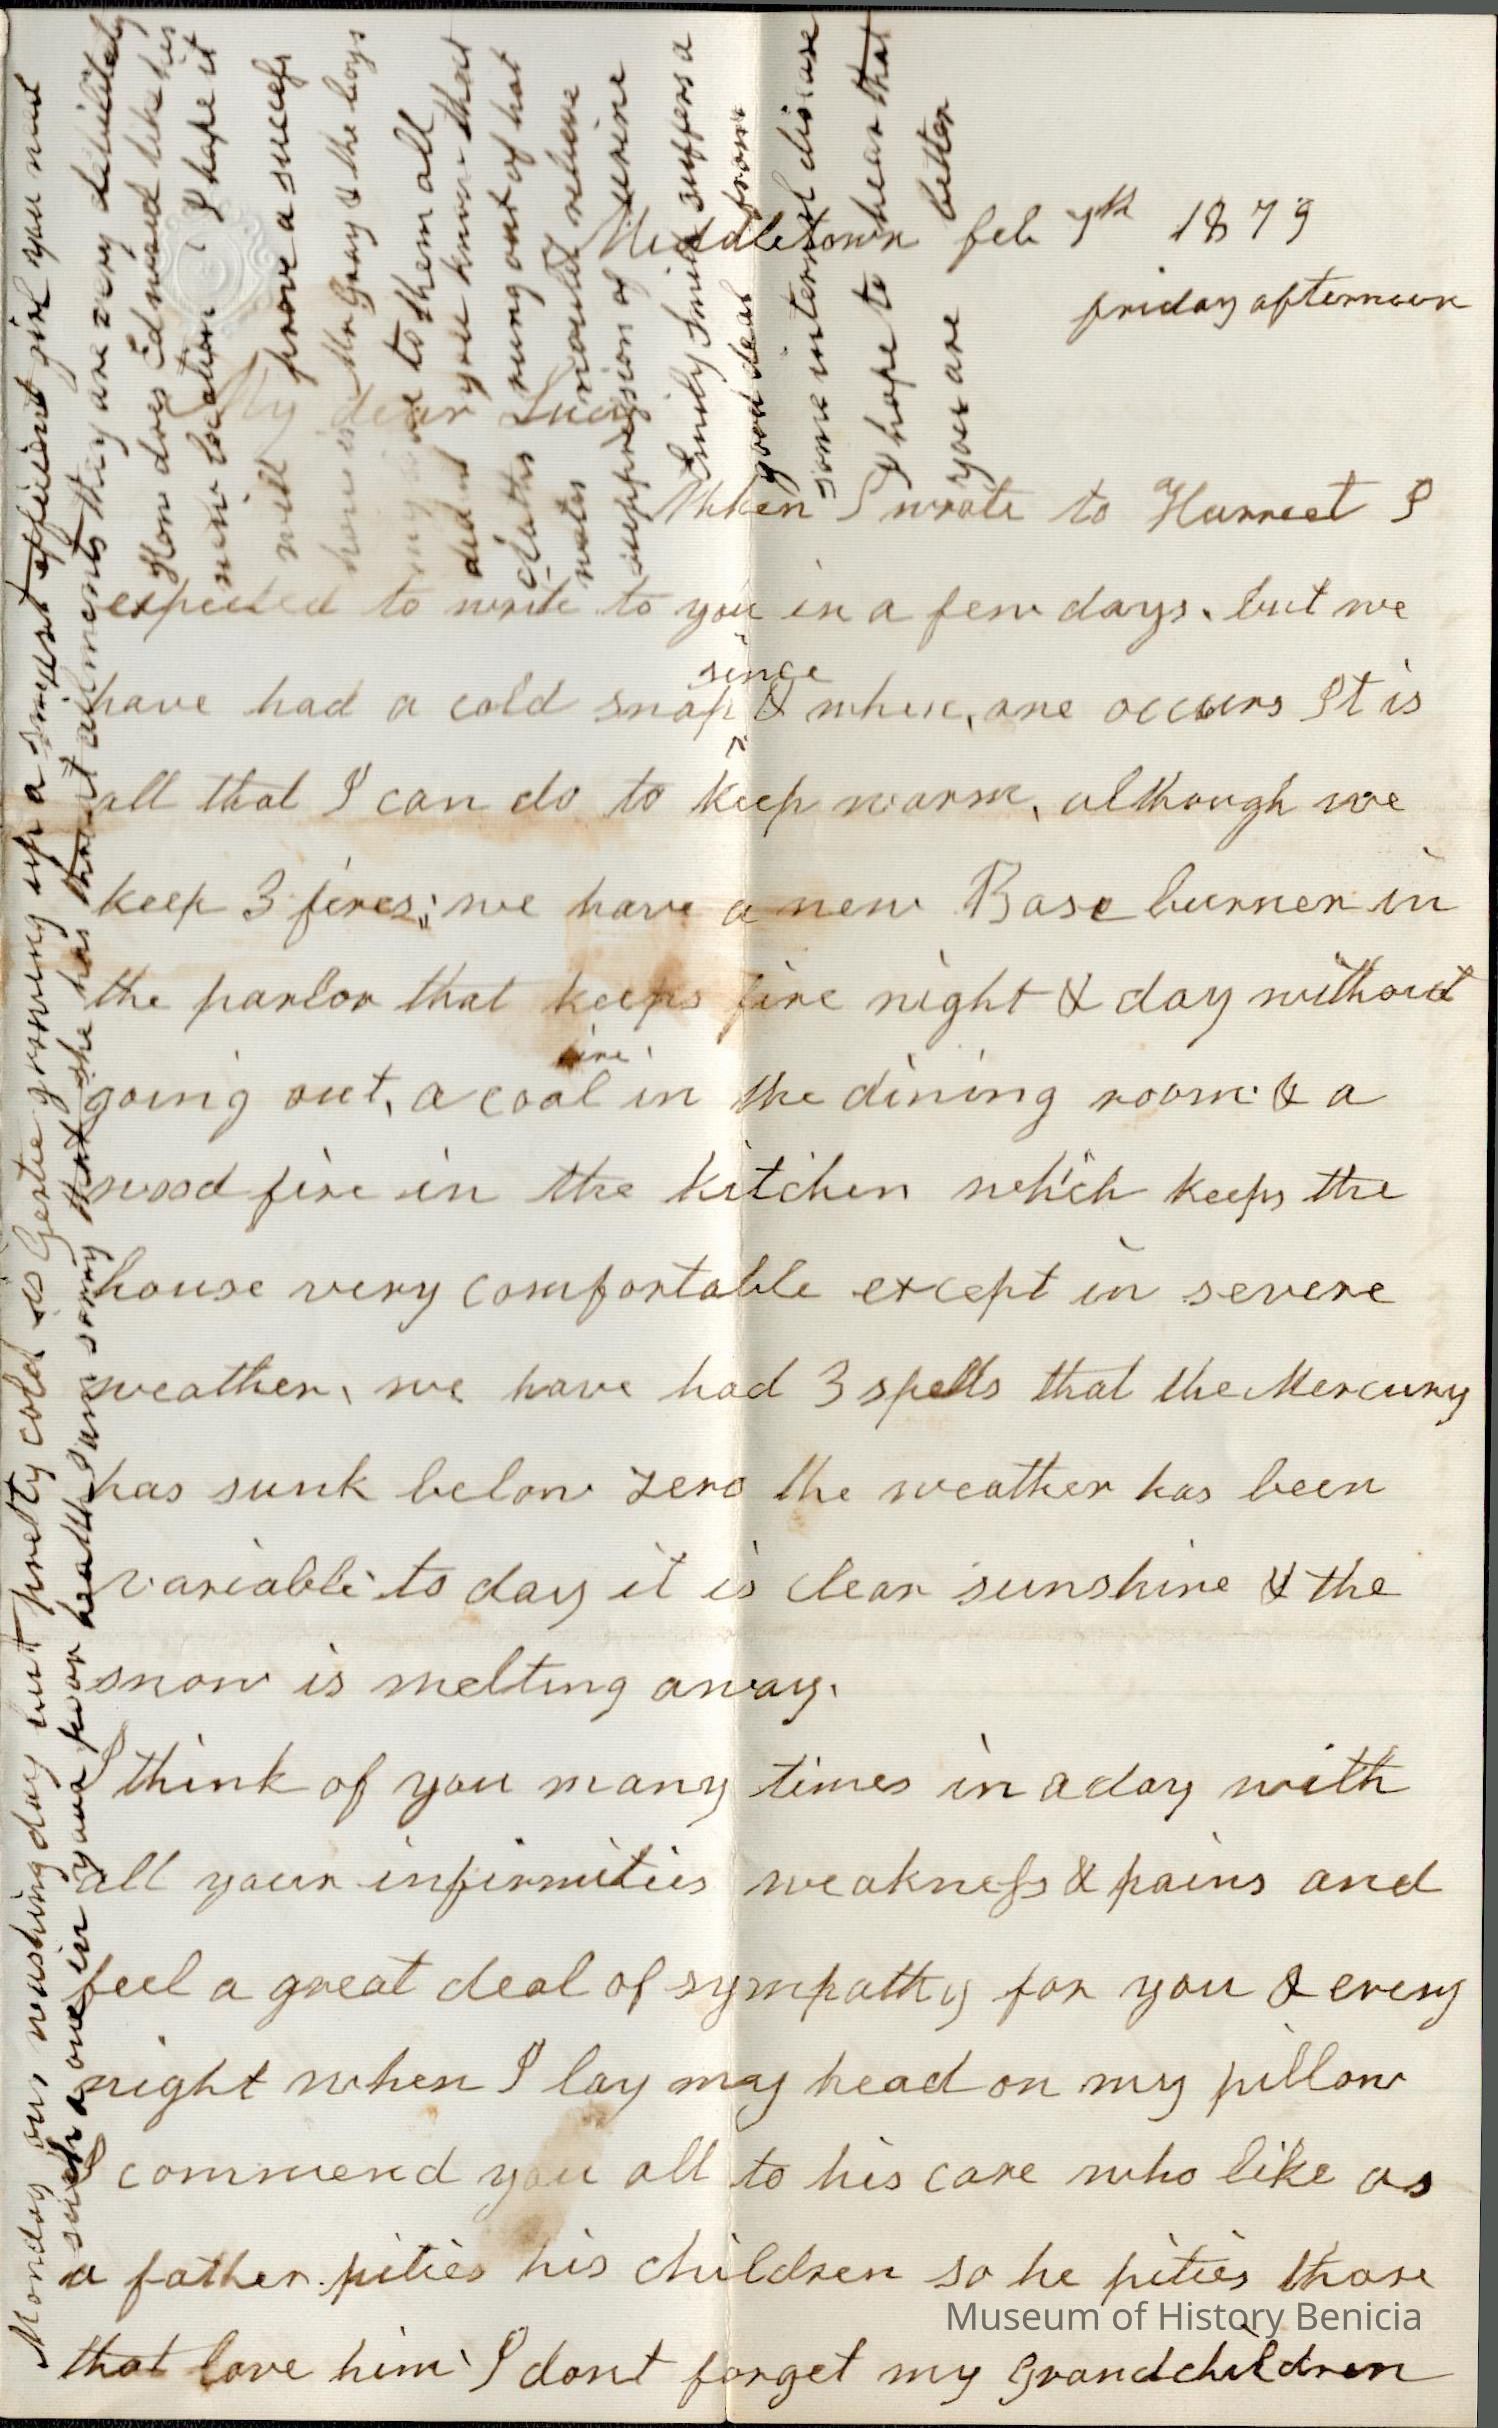 Middletown feb 7th 1879
friday afternoon
My dear Lucy
When I wrote to Harreet I
expected to write to you in a few days. but we
have had a cold snap since & when, one occurs It is
all that I can do to keep warm, although we
keep 3 fires; we have a new Base burner in
the parlor that keeps fire night & day without
going out, a coal fire in the dining room & a
wood fire in the kitchen which keeps the
house very comfortable except in severe
weather, we have had 3 spells that the Mercury
has sunk below zero the weather has been
variable to day it is clear sunshine & the
snow is melting away.
I think of you many times in a day with
all your infirmities weakness & pains and
feel a great deal of sympathy for you & every
night when I lay my head on my pillow
I commend you all to his care who like as
a father pities his children so he pities those
that love him I dont forget my Grandchildren
Monday our washing day but pretty cold is Gertie growing up a smart efficient girl you need
such a one in your poor health I am sorry that she has throat ailments they are very debilitating
How does Edmund like his
new location I hope it
will prove a success
how is Mr Gray & the boys
my love to them all
did you know that
cloths rung out of hot
water would relieve
suppression of urine
Emily Smith suffers a
good deal from
some internal disease
I hope to hear that
you are better
Museum of History Benicia